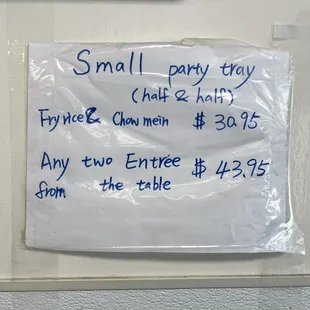 Small party tray
(half & half)
Fryrice & Chow mein $ 30.95
Any two Entrée $ 43.95
from the table